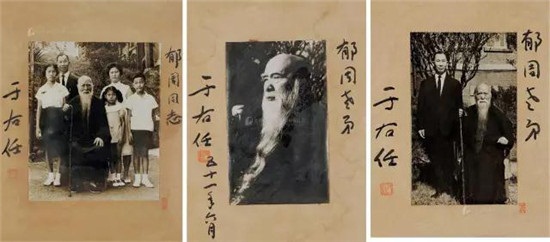 郁周同志
于右任
郁周老弟
于右任
五十一年六月
郁周老弟
于右任